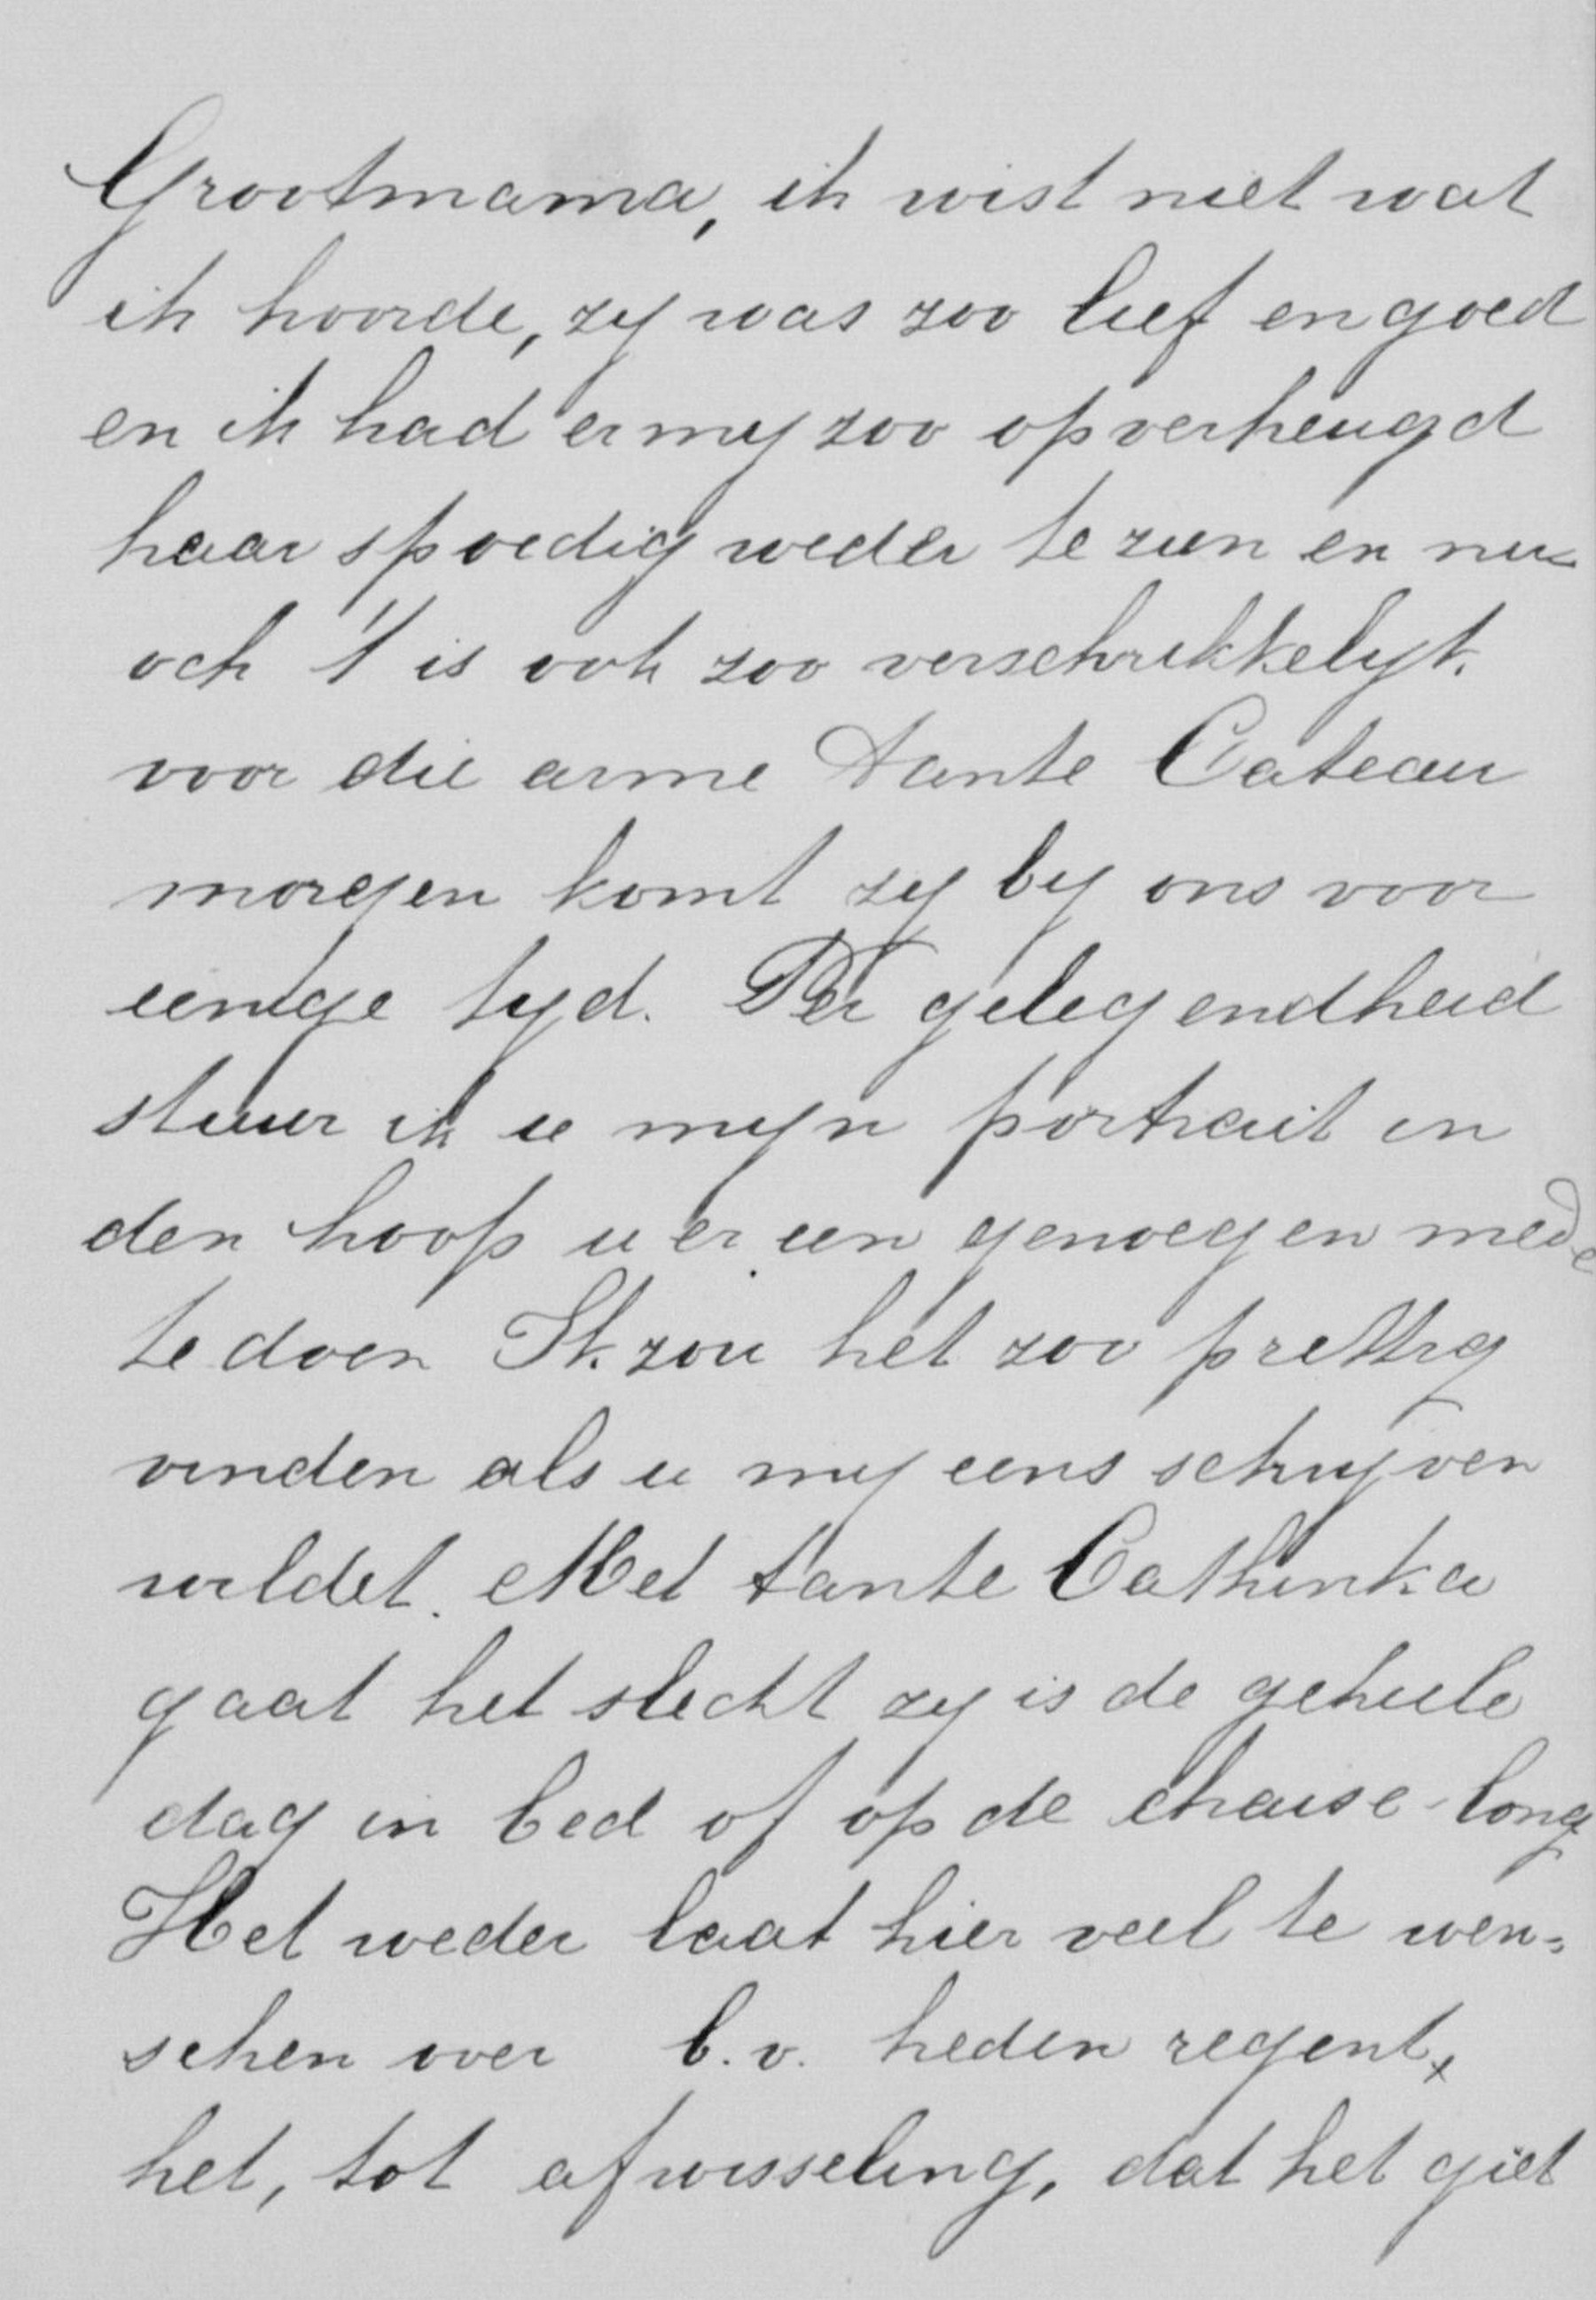 Grootmama, ik wist niet wat
ik hoorde, zij was zoo lief en goed
en ik had er mij zoo op verheugd
haar spoedig weder te zien en nu
och 't is ook zoo verschrikkelijk.
voor die arme tante Cateau
morgen komt zij bij ons voor
eenige tijd. Per gelegendheid
stuur ik u mijn portrait in
den hoop u er een genoegen mede
te doen Ik zou het zoo prettig
vinden als u mij eens schrijven
wildet. Met tante Cathinka
gaat het slecht zij is de geheele
dag in bed of op de chaise-long
Het weder laat hier veel te wen=
schen over b.v. heden regent
het, tot afwisseling, dat het giet